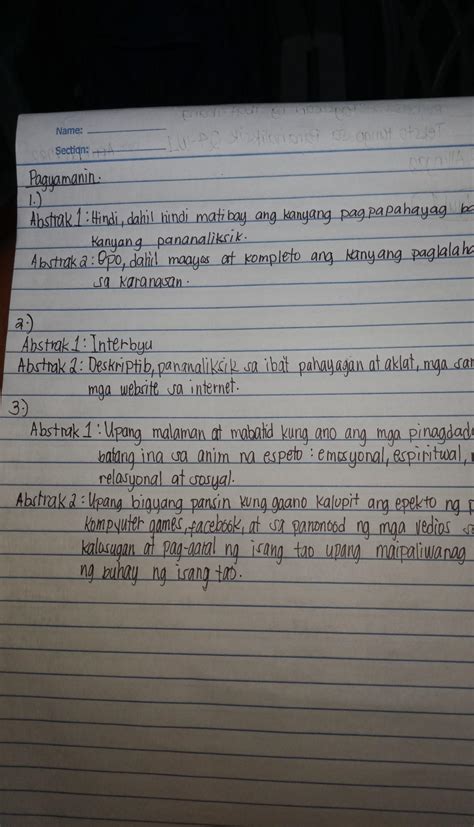 Name:
Section:
Pagyamanin:
1.)
Abstrak 1: Hindi, dahil hindi matibay ang kanyang pagpapahayag ba
kanyang pananaliksik.
Abstrak 2: Opo, dahil maayos at kompleto ang kanyang paglalaha
sa karanasan.
2.)
Abstrak 1: Interbyu
Abstrak 2: Deskriptib, pananaliksik sa iba't pahayagan at aklat, mga san
mga website sa internet.
3.)
Abstrak 1: Upang malaman at mabatid kung ano ang mga pinagdada
batang ina sa anim na espeto: emosyonal, espiritwal,
relasyonal at sosyal.
Abstrak 2: Upang bigyang pansin kung gaano kalupit ang epekto ng p
kompyuter games, facebook, at sa panonood ng mga vedios s
kalasugan at pag-aaral ng isang tao upang maipaliwanag
ng buhay ng isang tao.